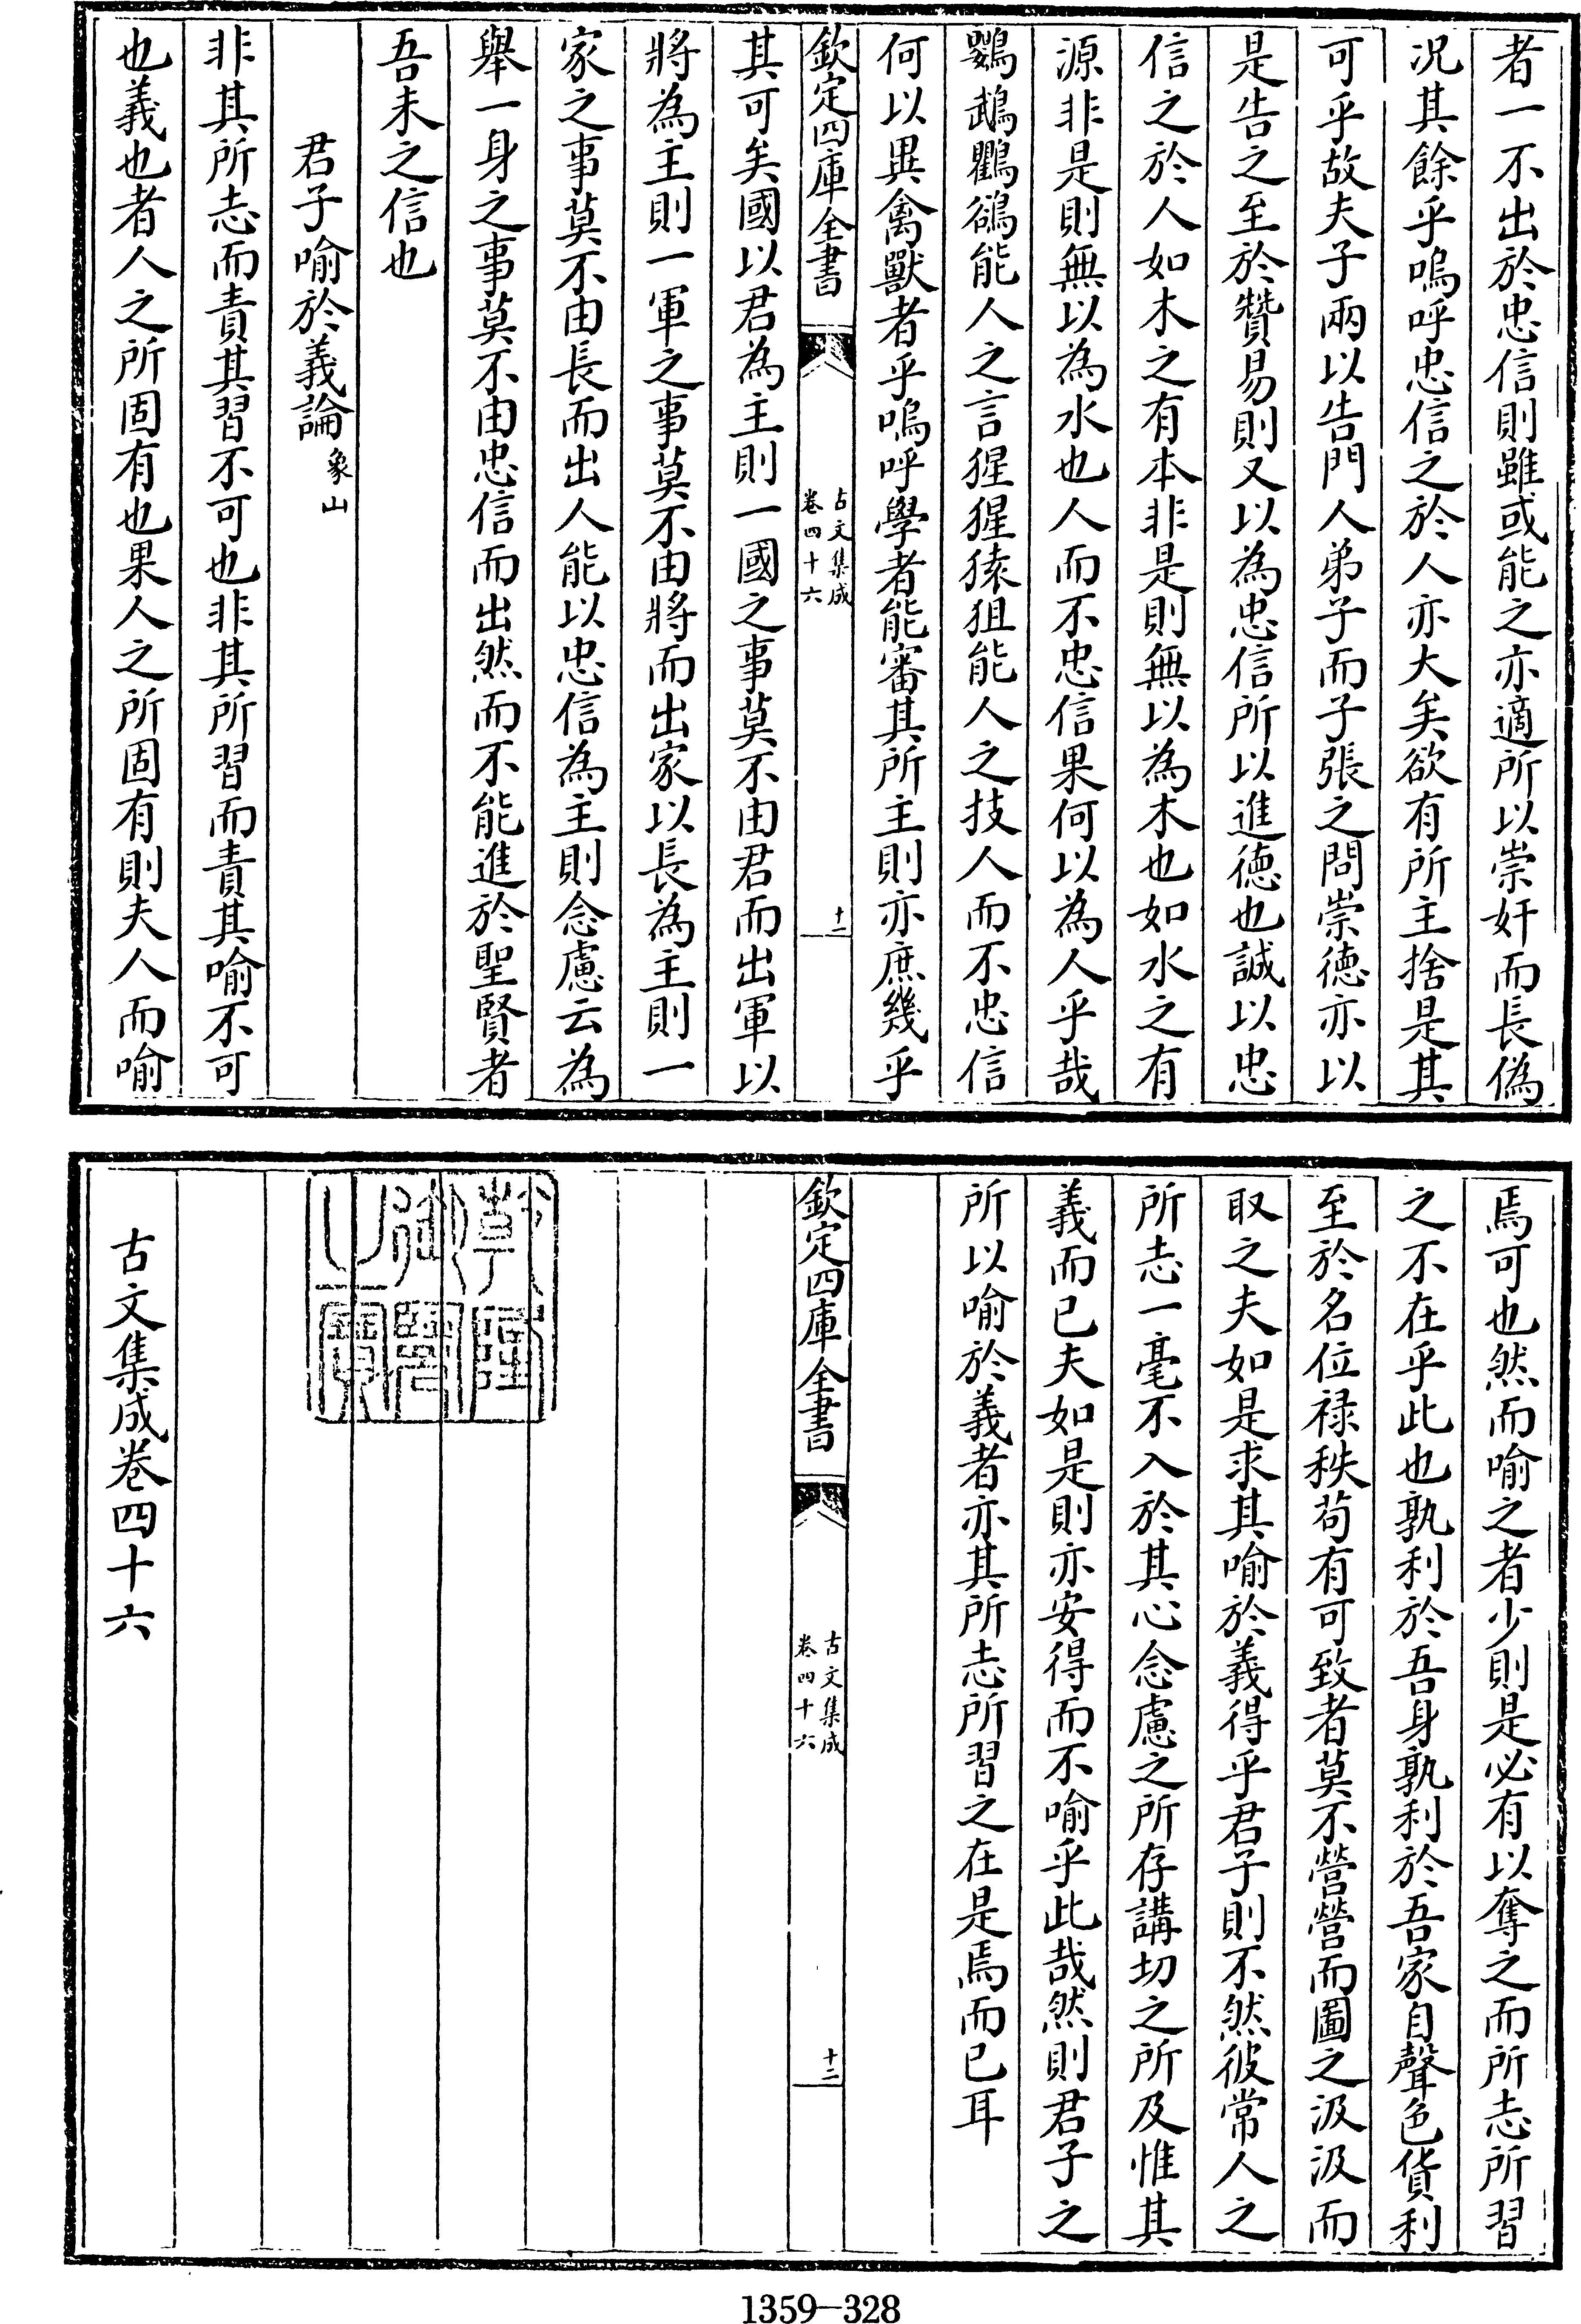 者一不出於忠信則雖或能之亦適所以崇奸而長偽
况其餘乎嗚呼忠信之於人亦大矣欲有所主捨是其
可乎故夫子兩以告門人弟子而子張之問崇徳亦以
是告之至於贊易則又以為忠信所以進徳也誠以忠
信之於人如木之有本非是則無以為木也如水之有
源非是則無以為水也人而不忠信果何以為人乎哉
鸚鵡鸜鵒能人之言猩猩猿狙能人之技人而不忠信
何以異禽獸者乎嗚呼學者能審其所主則亦庶幾乎
欽定四庫全書
古文集成
卷四十六
十一
其可矣國以君為主則一國之事莫不由君而出軍以
將為主則一軍之事莫不由將而出家以長為主則一
家之事莫不由長而出人能以忠信為主則念慮云為
舉一身之事莫不由忠信而出然而不能進於聖賢者
吾未之信也
君子喻於義論象山
非其所志而責其習不可也非其所習而責其喻不可
也義也者人之所固有也果人之所固有則夫人而喻
焉可也然而喻之者少則是必有以奪之而所志所習
之不在乎此也孰利於吾身孰利於吾家自聲色貨利
至於名位禄秩苟有可致者莫不營營而圖之汲汲而
取之夫如是求其喻於義得乎君子則不然彼常人之
所志一毫不入於其心念慮之所存講切之所及惟其
義而已夫如是則亦安得而不喻乎此哉然則君子之
所以喻於義者亦其所志所習之在是焉而已耳
欽定四庫全書
古文集成
卷四十六
十二
乾隆御覽之寶
古文集成卷四十六
1359-328